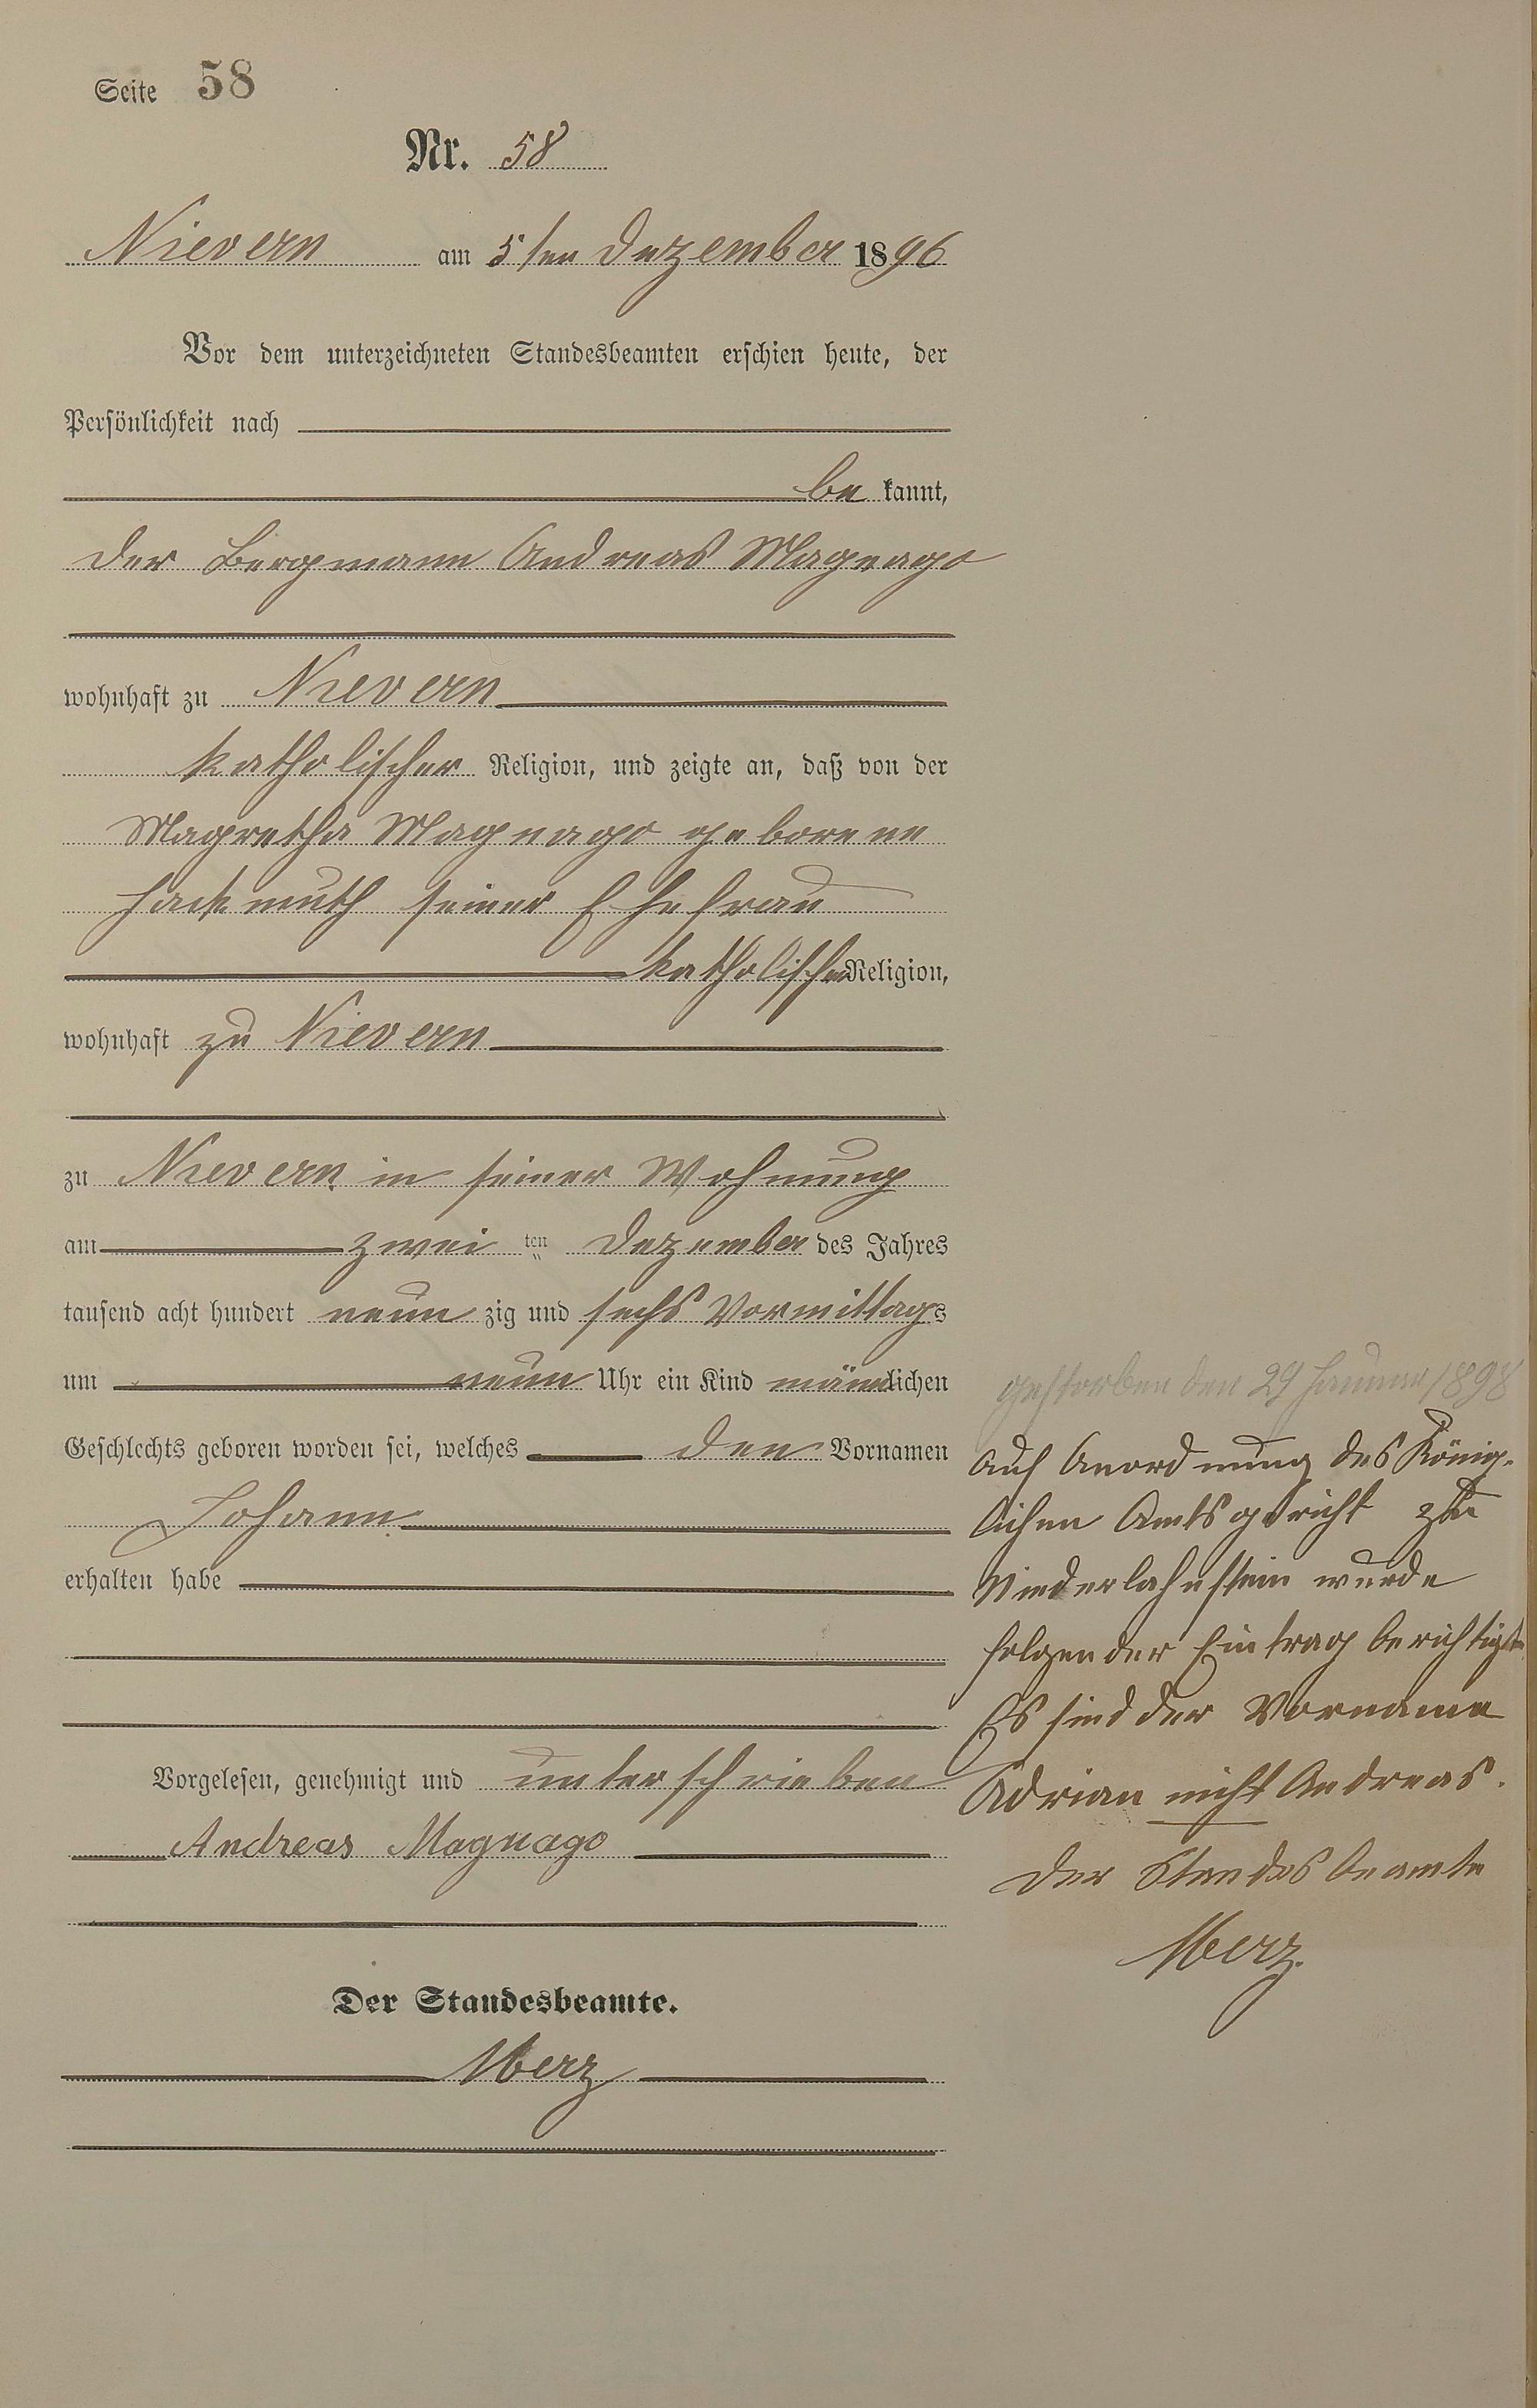 Seite 58
Nr. 58
Nievern am 5ten Dezember 1896
Vor dem unterzeichneten Standesbeamten erschien heute, der
Persönlichkeit nach
be kannt,
der Bergmann Andreas Magnago
wohnhaft zu Nievern
katholischer Religion, und zeigte an, daß von der
Magretha Magnago geborene
Hackmuth seiner Ehefrau
katholischer Religion,
wohnhaft zu Nievern
zu Nievern in seiner Wohnung
am zwei ten Dezember des Jahres
tausend acht hundert neun zig und sechs Vormittags
um neun Uhr ein Kind männlichen
Geschlechts geboren worden sei, welches den Vornamen
Johann
erhalten habe
Vorgelesen, genehmigt und unterschrieben
Andreas Magnago
Der Standesbeamte.
Merz
gestorben den 29 Januar 1898
Auf Anordnung des König-
lichen Amtsgericht zu
Niederlahnstein wurde
folgender Eintrag berichtigt.
Es sind der Vorname
Adrian nicht Andreas.
Der Standesbeamte
Merz.